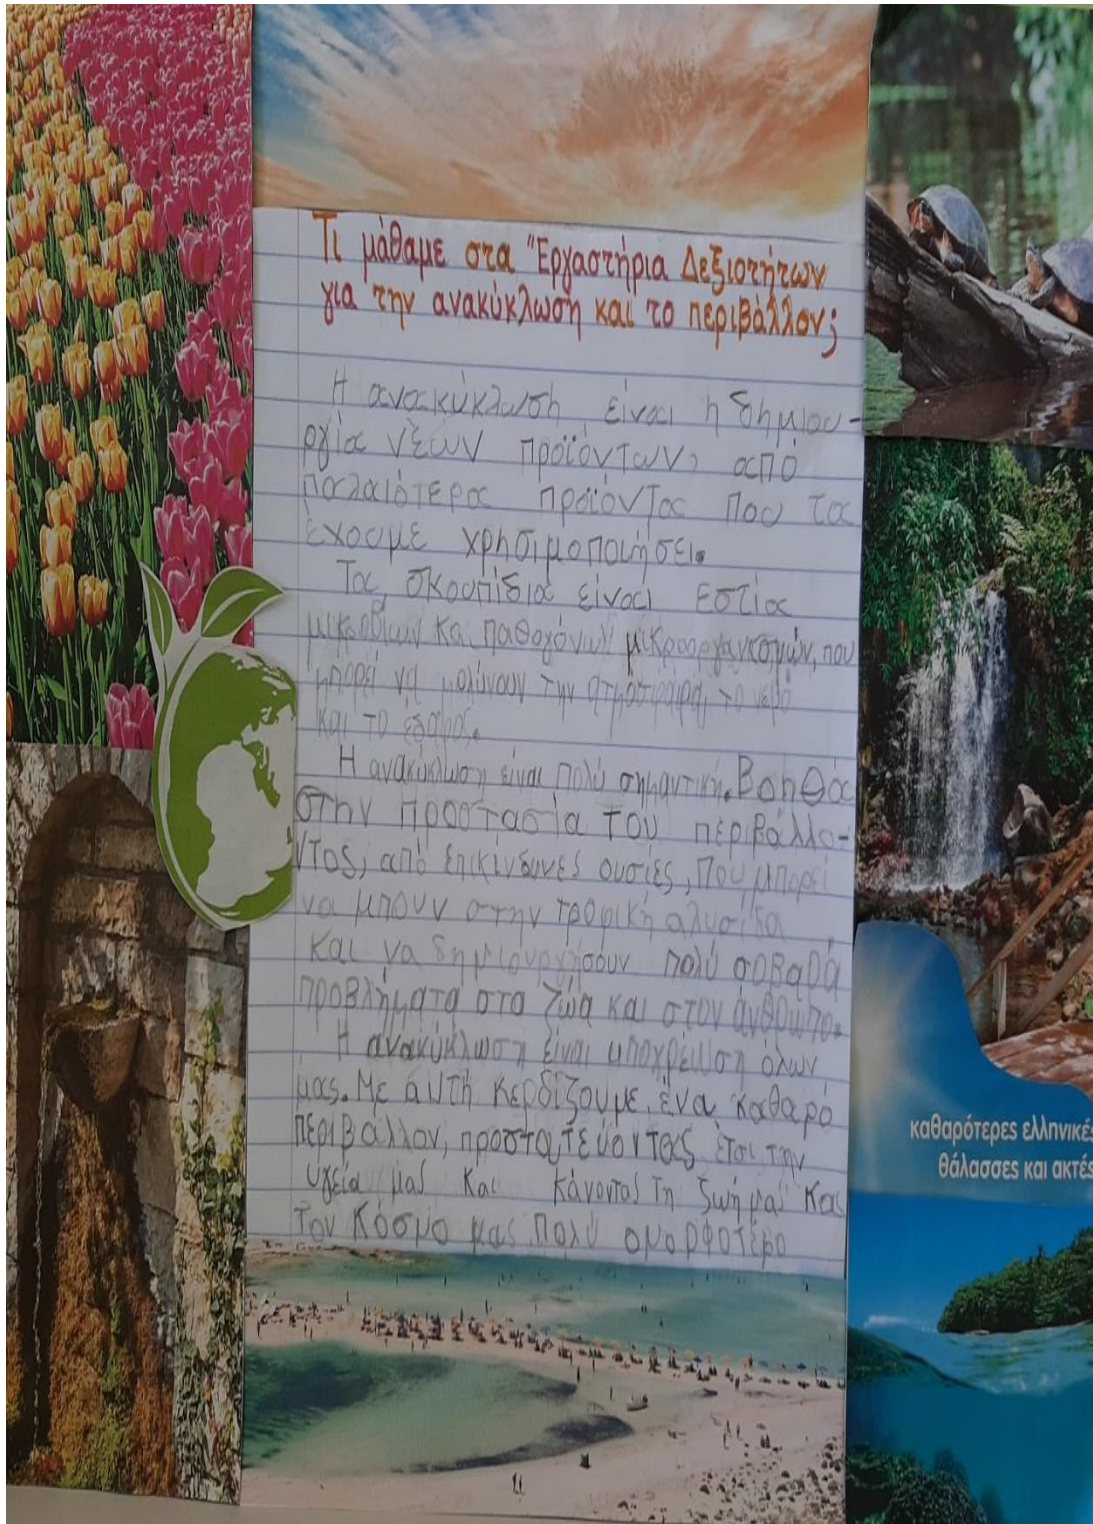 Τι μάθαμε στα "Εργαστήρια Δεξιοτήτων
για την ανακύκλωση και το περιβάλλον;
Η ανακύκλωση είναι η δημιου-
ργία νέων προϊόντων, από
παλαιότερα προϊόντα που τα
έχουμε χρησιμοποιήσει.
Τα σκουπίδια είναι εστία
μικροβίων και παθογόνων μικροοργανισμών, που
μπορεί να μολύνουν την ατμόσφαιρα, το νερό
και το έδαφος.
Η ανακύκλωση είναι πολύ σημαντική. Βοηθά
στην προστασία του περιβάλλο-
ντος, από επικίνδυνες ουσίες, που μπορεί
να μπουν στην τροφική αλυσίδα
και να δημιουργήσουν πολύ σοβαρά
προβλήματα στα ζώα και στον άνθρωπο.
Η ανακύκλωση είναι υποχρέωση όλων
μας. Με αυτή κερδίζουμε ένα καθαρό
περιβάλλον, προστατεύοντας έτσι την
υγεία μας και κάνοντας τη ζωή μας και
τον κόσμο μας πολύ ομορφότερο
καθαρότερες ελληνικές
θάλασσες και ακτές